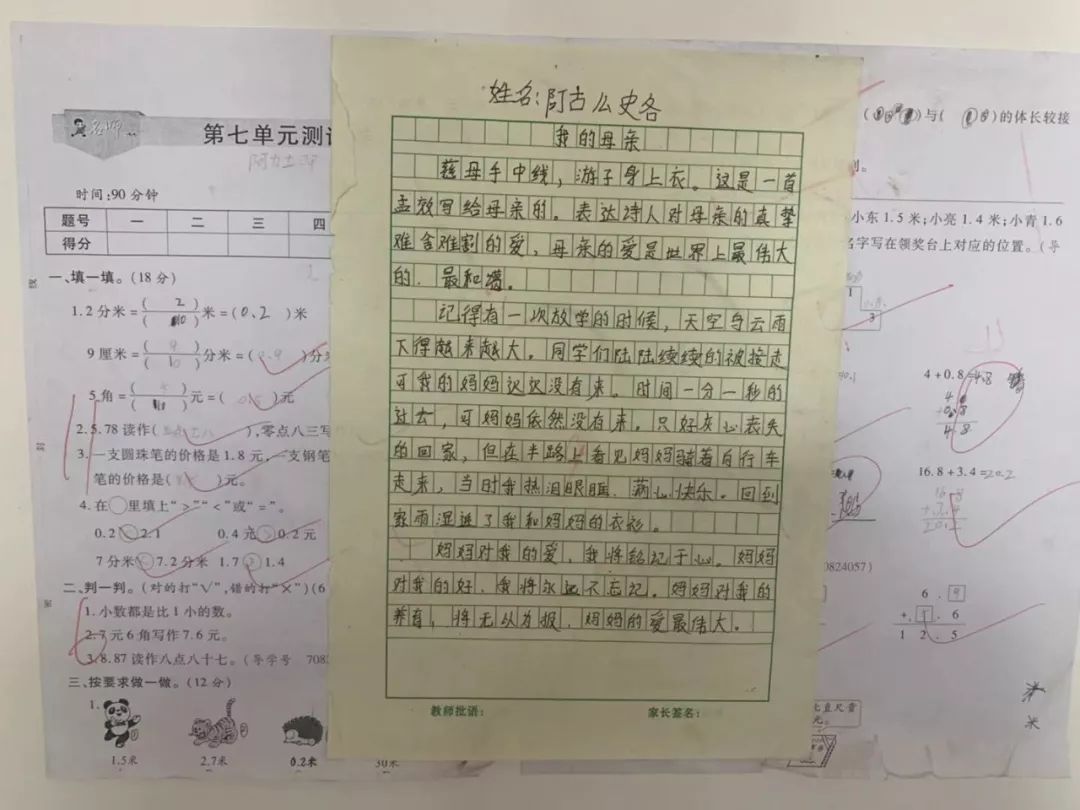 名师
第七单元测试
时间:90分钟
题号 一 二 三 四
得分
一、填一填。(18分)
1.2分米=(2)/(10)米=(0.2)米
9厘米=(9)/(10)分米=(0.9)分米
5角=( )/(10)元=( )元
2.5.78读作( ),零点八三写
3.一支圆珠笔的价格是1.8元,一支钢笔
笔的价格是( )元。
4.在○里填上“>”“<”或“=”。
0.2○2.1 0.4元○0.2元
7分米○7.2分米 1.7○1.4
二、判一判。(对的打“√”,错的打“×”)(6
1.小数都是比1小的数。
2.7元6角写作7.6元。
3.8.87读作八点八十七。(导学号 7082
三、按要求做一做。(12分)
1.
1.5米 2.7米 0.2米 30米
姓名:阿古么史各
我的母亲
慈母手中线,游子身上衣。这是一首
孟效写给母亲的。表达诗人对母亲的真挚
难舍难割的爱,母亲的爱是世界上最伟大
的.最和蔼。
记得有一次放学的时候,天空乌云雨
下得越来越大。同学们陆陆续续的被接走
可我的妈妈迟迟没有来。时间一分一秒的
过去,可妈妈依然没有来。只好灰心丧失
的回家,但在半路上看见妈妈骑着自行车
走来,当时我热泪眼眶.满心快乐。回到
家雨湿进了我和妈妈的衣衫。
妈妈对我的爱,我将铭记于心。妈妈
对我的好.我将永远不忘记。妈妈对我的
养育,将无以为报.妈妈的爱最伟大。
教师批语: 家长签名:
)与( )的体长较接
小东1.5米;小亮1.4米;小青1.6
名字写在领奖台上对应的位置。(导
1
3
4+0.8=4.8
4
+0.8
4.8
16.8+3.4=20.2
16.8
+3.4
20.2
0824057)
6.9
+5.6
12.5
米